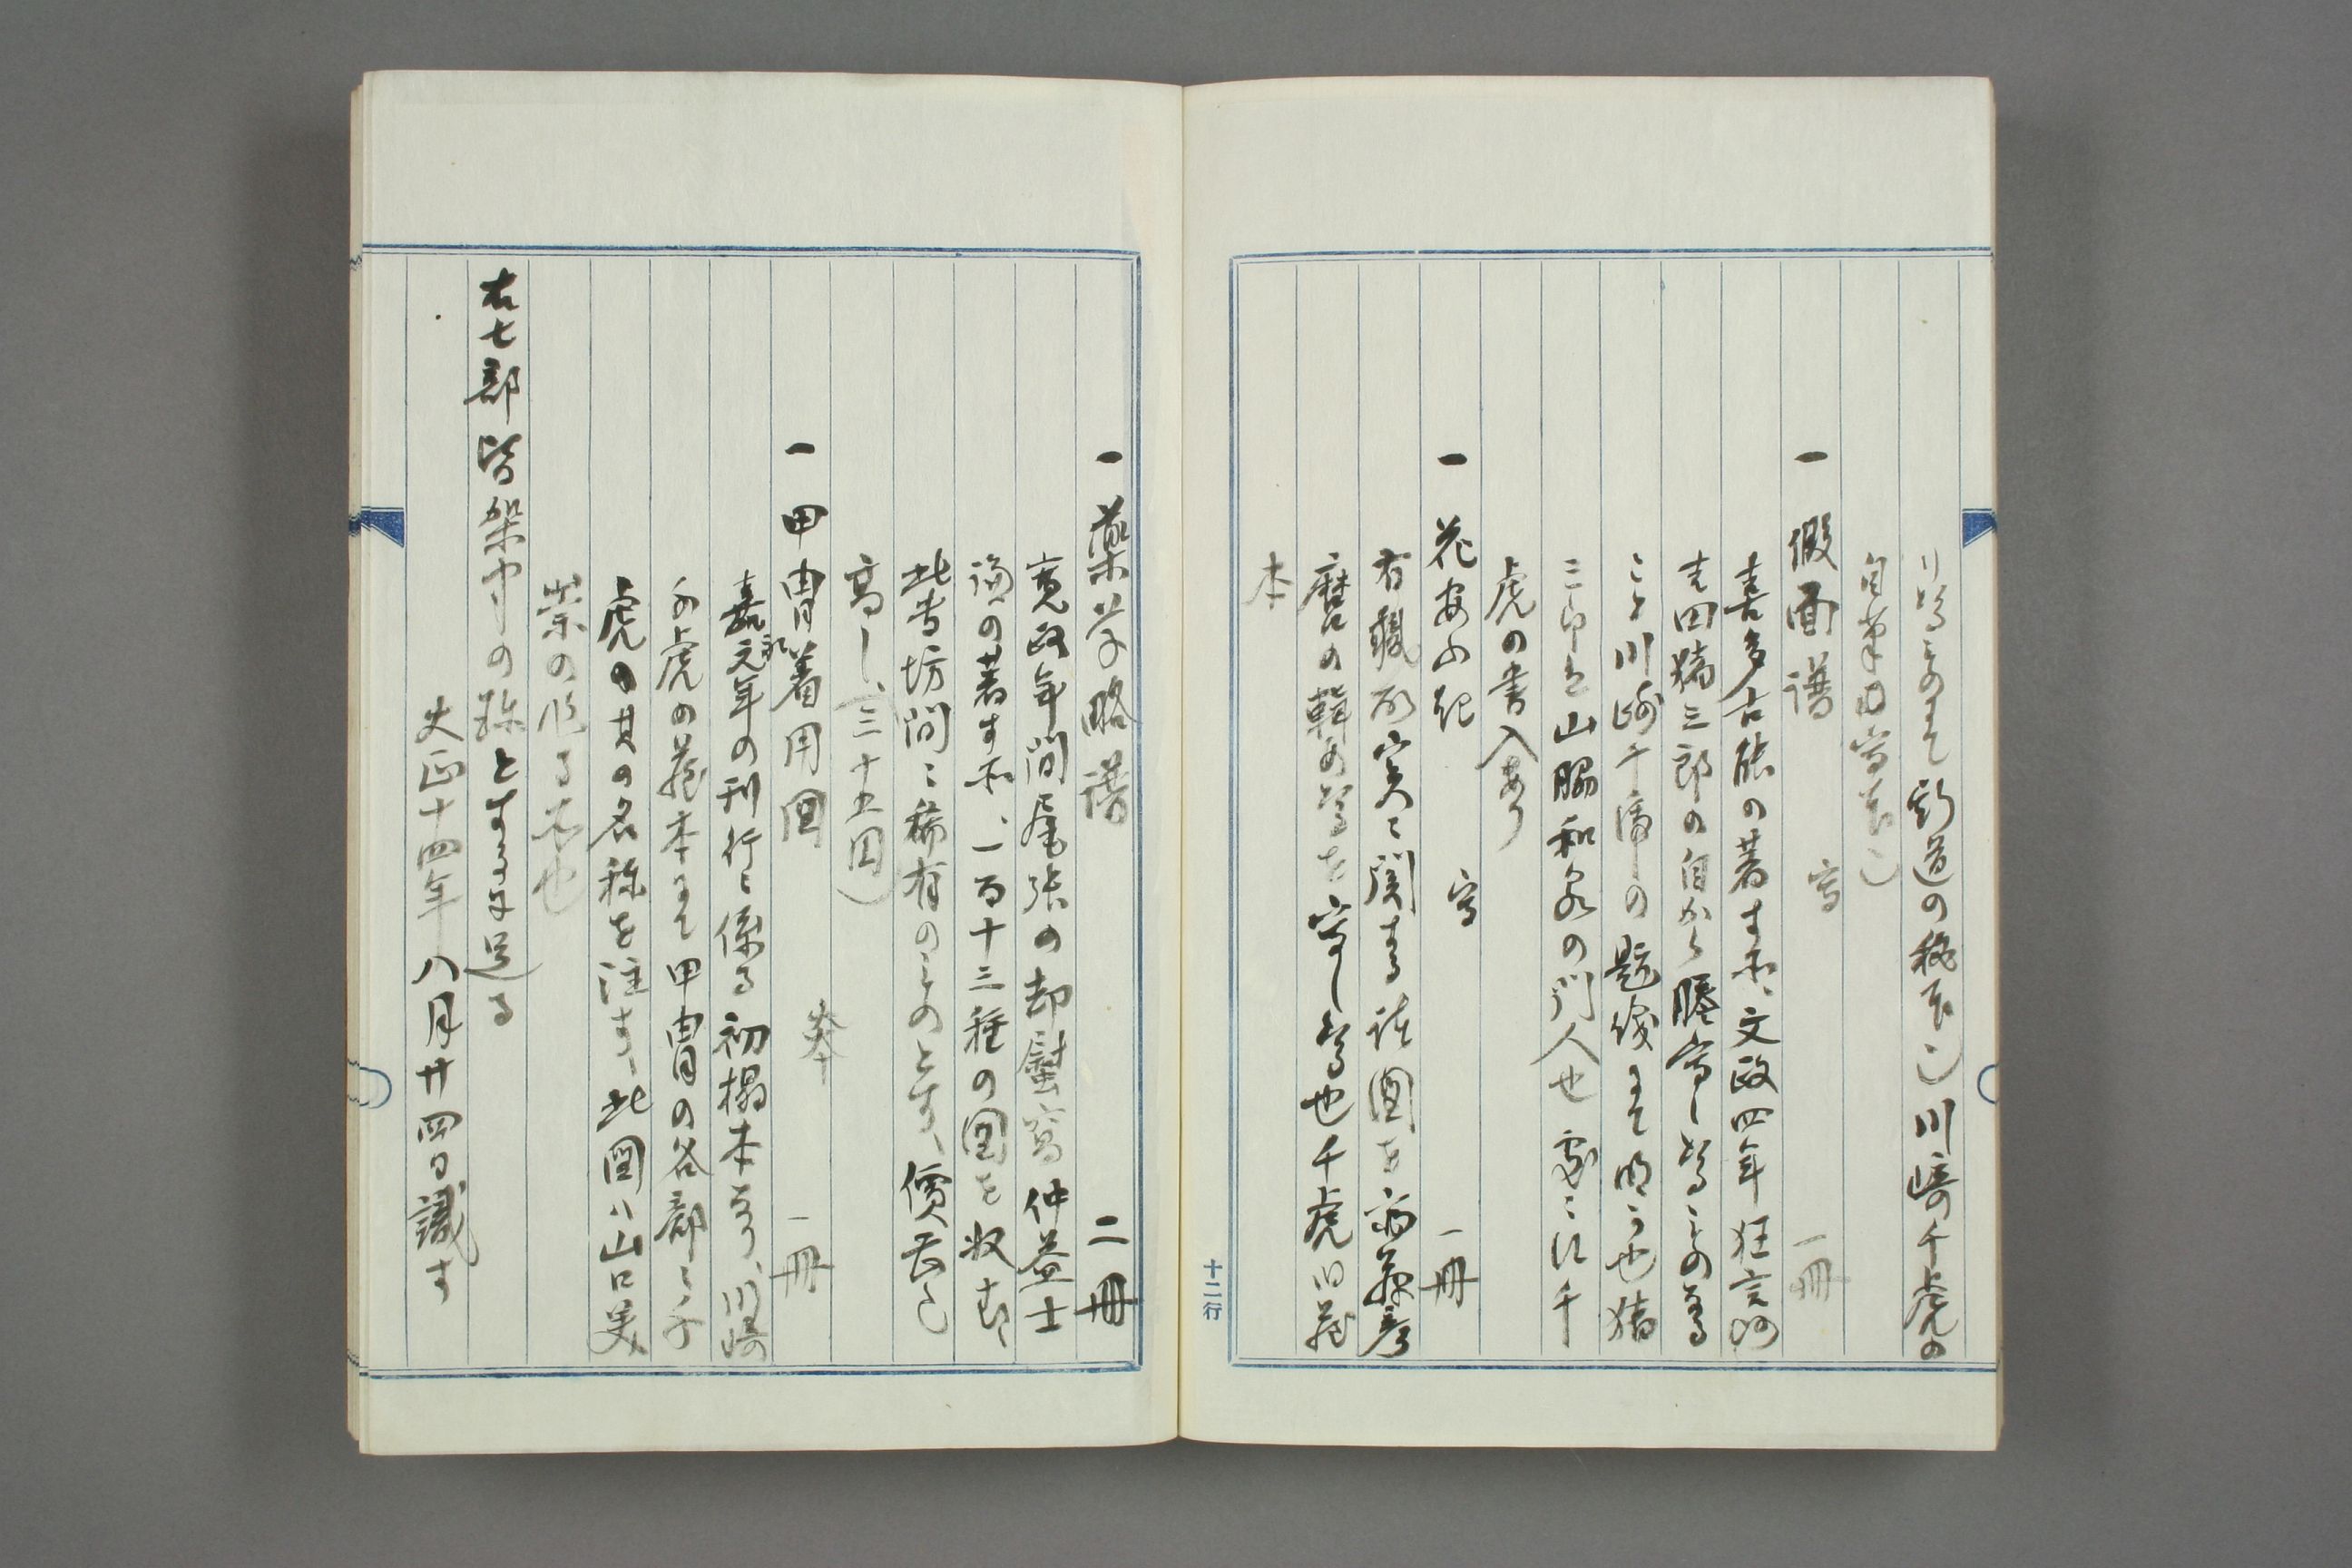 りしものにて斯道の秘本也川﨑千虎の
自筆力写本也
一 假面譜 写 一冊
喜多古能の著す所、文政四年狂言師
吉田猪三郎の自から謄写しゝもの
こと川﨑千虎の題簽にて明か也猪
三郎は山脇和泉の門人也處々に千
虎の書入あり
一 花安不紀 写 一冊
有職故実に関する諸図を
磨の輯めしを写しゝ也千虎旧蔵
本
一 薬草略譜 二冊
寛政年間尾張の却塵窩仲益士
諤の著す所、一百十三種の図を収む、
此書坊間に稀有のものとす、價甚だ
高し、(三十五円)
一 甲冑着用図 一冊
嘉永元年の刊行に係る初榻本なり、川﨑
千虎の蔵本にて甲冑の各部に千
虎の其の名称を注す、此図ハ山口美
崇の作る所也
右七部皆架中の珍とするに足る
大正十四年八月廿四日識す
十二行